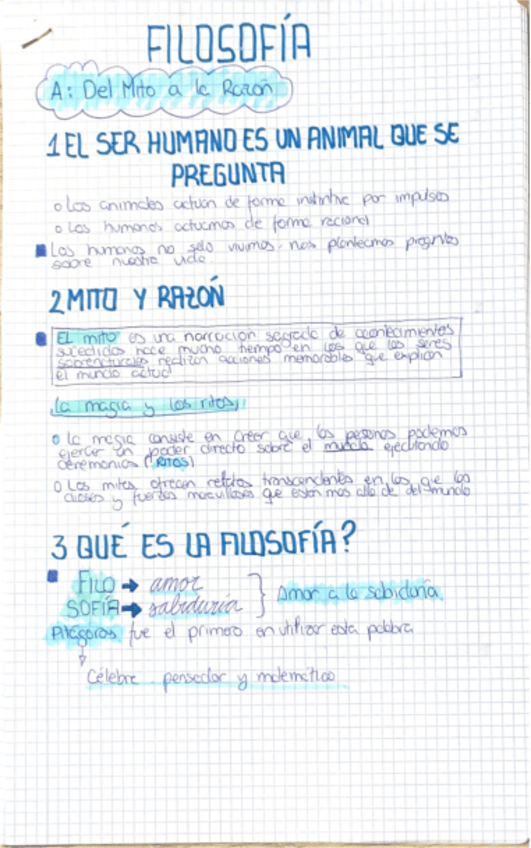 FILOSOFÍA
A: Del Mito a la Razón
1 EL SER HUMANO ES UN ANIMAL QUE SE
PREGUNTA
o Los animales actúan de forma instintiva por impulsos
o Los humanos actuamos de forma racional
Los humanos no solo vivimos, nos planteamos preguntas
sobre nuestra vida.
2 MITO Y RAZÓN
El mito es una narración sagrada de acontecimientos
sucedidos hace mucho tiempo en los que los seres
sobrenaturales realizan acciones memorables que explican
el mundo actual
La magia y los ritos,
o La magia consiste en creer que las personas podemos
ejercer un poder directo sobre el mundo ejecutando
ceremonias (RITOS)
o Los mitos ofrecen relatos transcendentes en los que los
dioses y fuerzas maravillosas que están mas alla de del mundo
3 QUÉ ES LA FILOSOFÍA?
FILO → amor
SOFÍA → sabiduría } Amor a la sabiduría
Pitágoras fue el primero en utilizar esta palabra
Célebre pensador y matemático